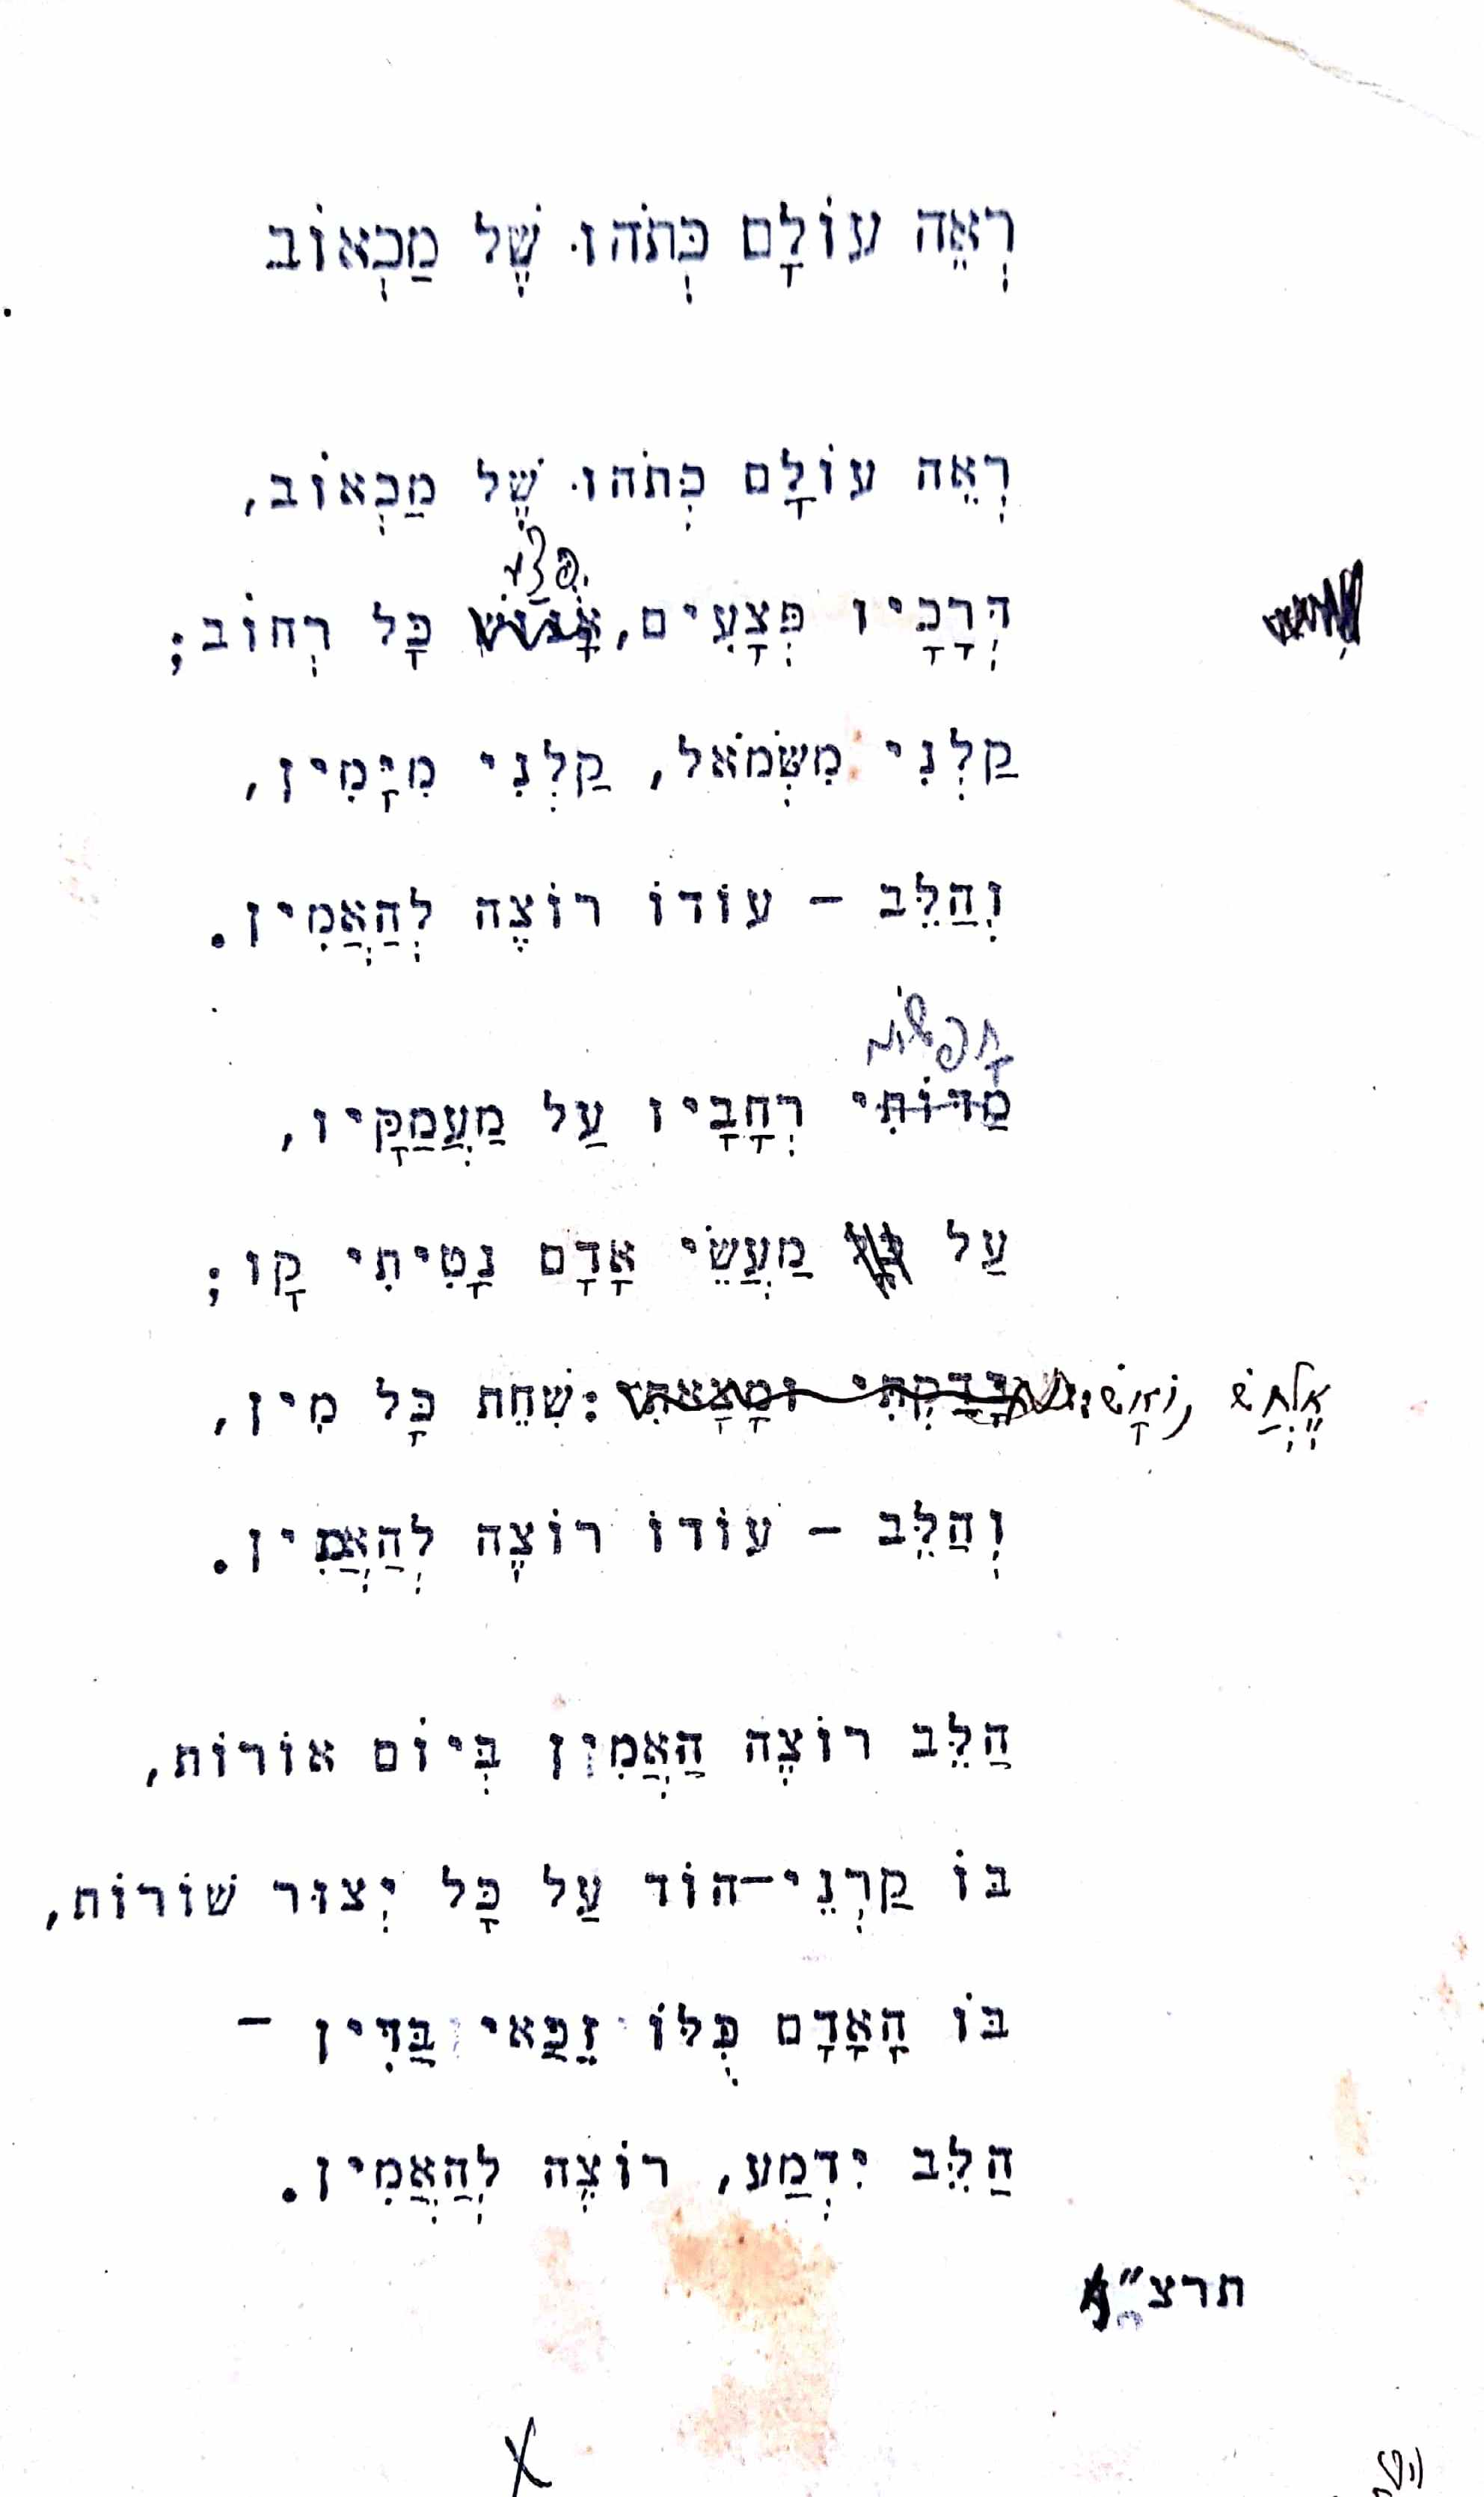 רְאֵה עוֹלָם כְּתֹהוּ שֶׁל מַכְאוֹב
רְאֵה עוֹלָם כְּתֹהוּ שֶׁל מַכְאוֹב,
דְּרָכָיו פְּצָעִים, כָּל רְחוֹב;
קַלְנִי מִשְּׂמֹאל, קַלְנִי מִיָּמִין,
וְהַלֵּב – עוֹדוֹ רוֹצֶה לְהַאֲמִין.
מַדּוֹתִי רְחָבָיו עַל מַעֲמַקָּיו,
עַל מַעֲשֵׂי אָדָם נָטִיתִי קָו;
בָּדַקְתִּי וּמָצָאתִי: שִׁחֵת כָּל מִין,
וְהַלֵּב – עוֹדוֹ רוֹצֶה לְהַאֲמִין.
הַלֵּב רוֹצֶה הַאֲמִין בְּיוֹם אוֹרוֹת,
בּוֹ קַרְנֵי–הוֹד עַל כָּל יְצוּר שׁוֹרוֹת,
בּוֹ הָאָדָם כֻּלּוֹ זַכַּאי בַּדִּין –
הַלֵּב יִדְמַע, רוֹצֶה לְהַאֲמִין.
תרצ״